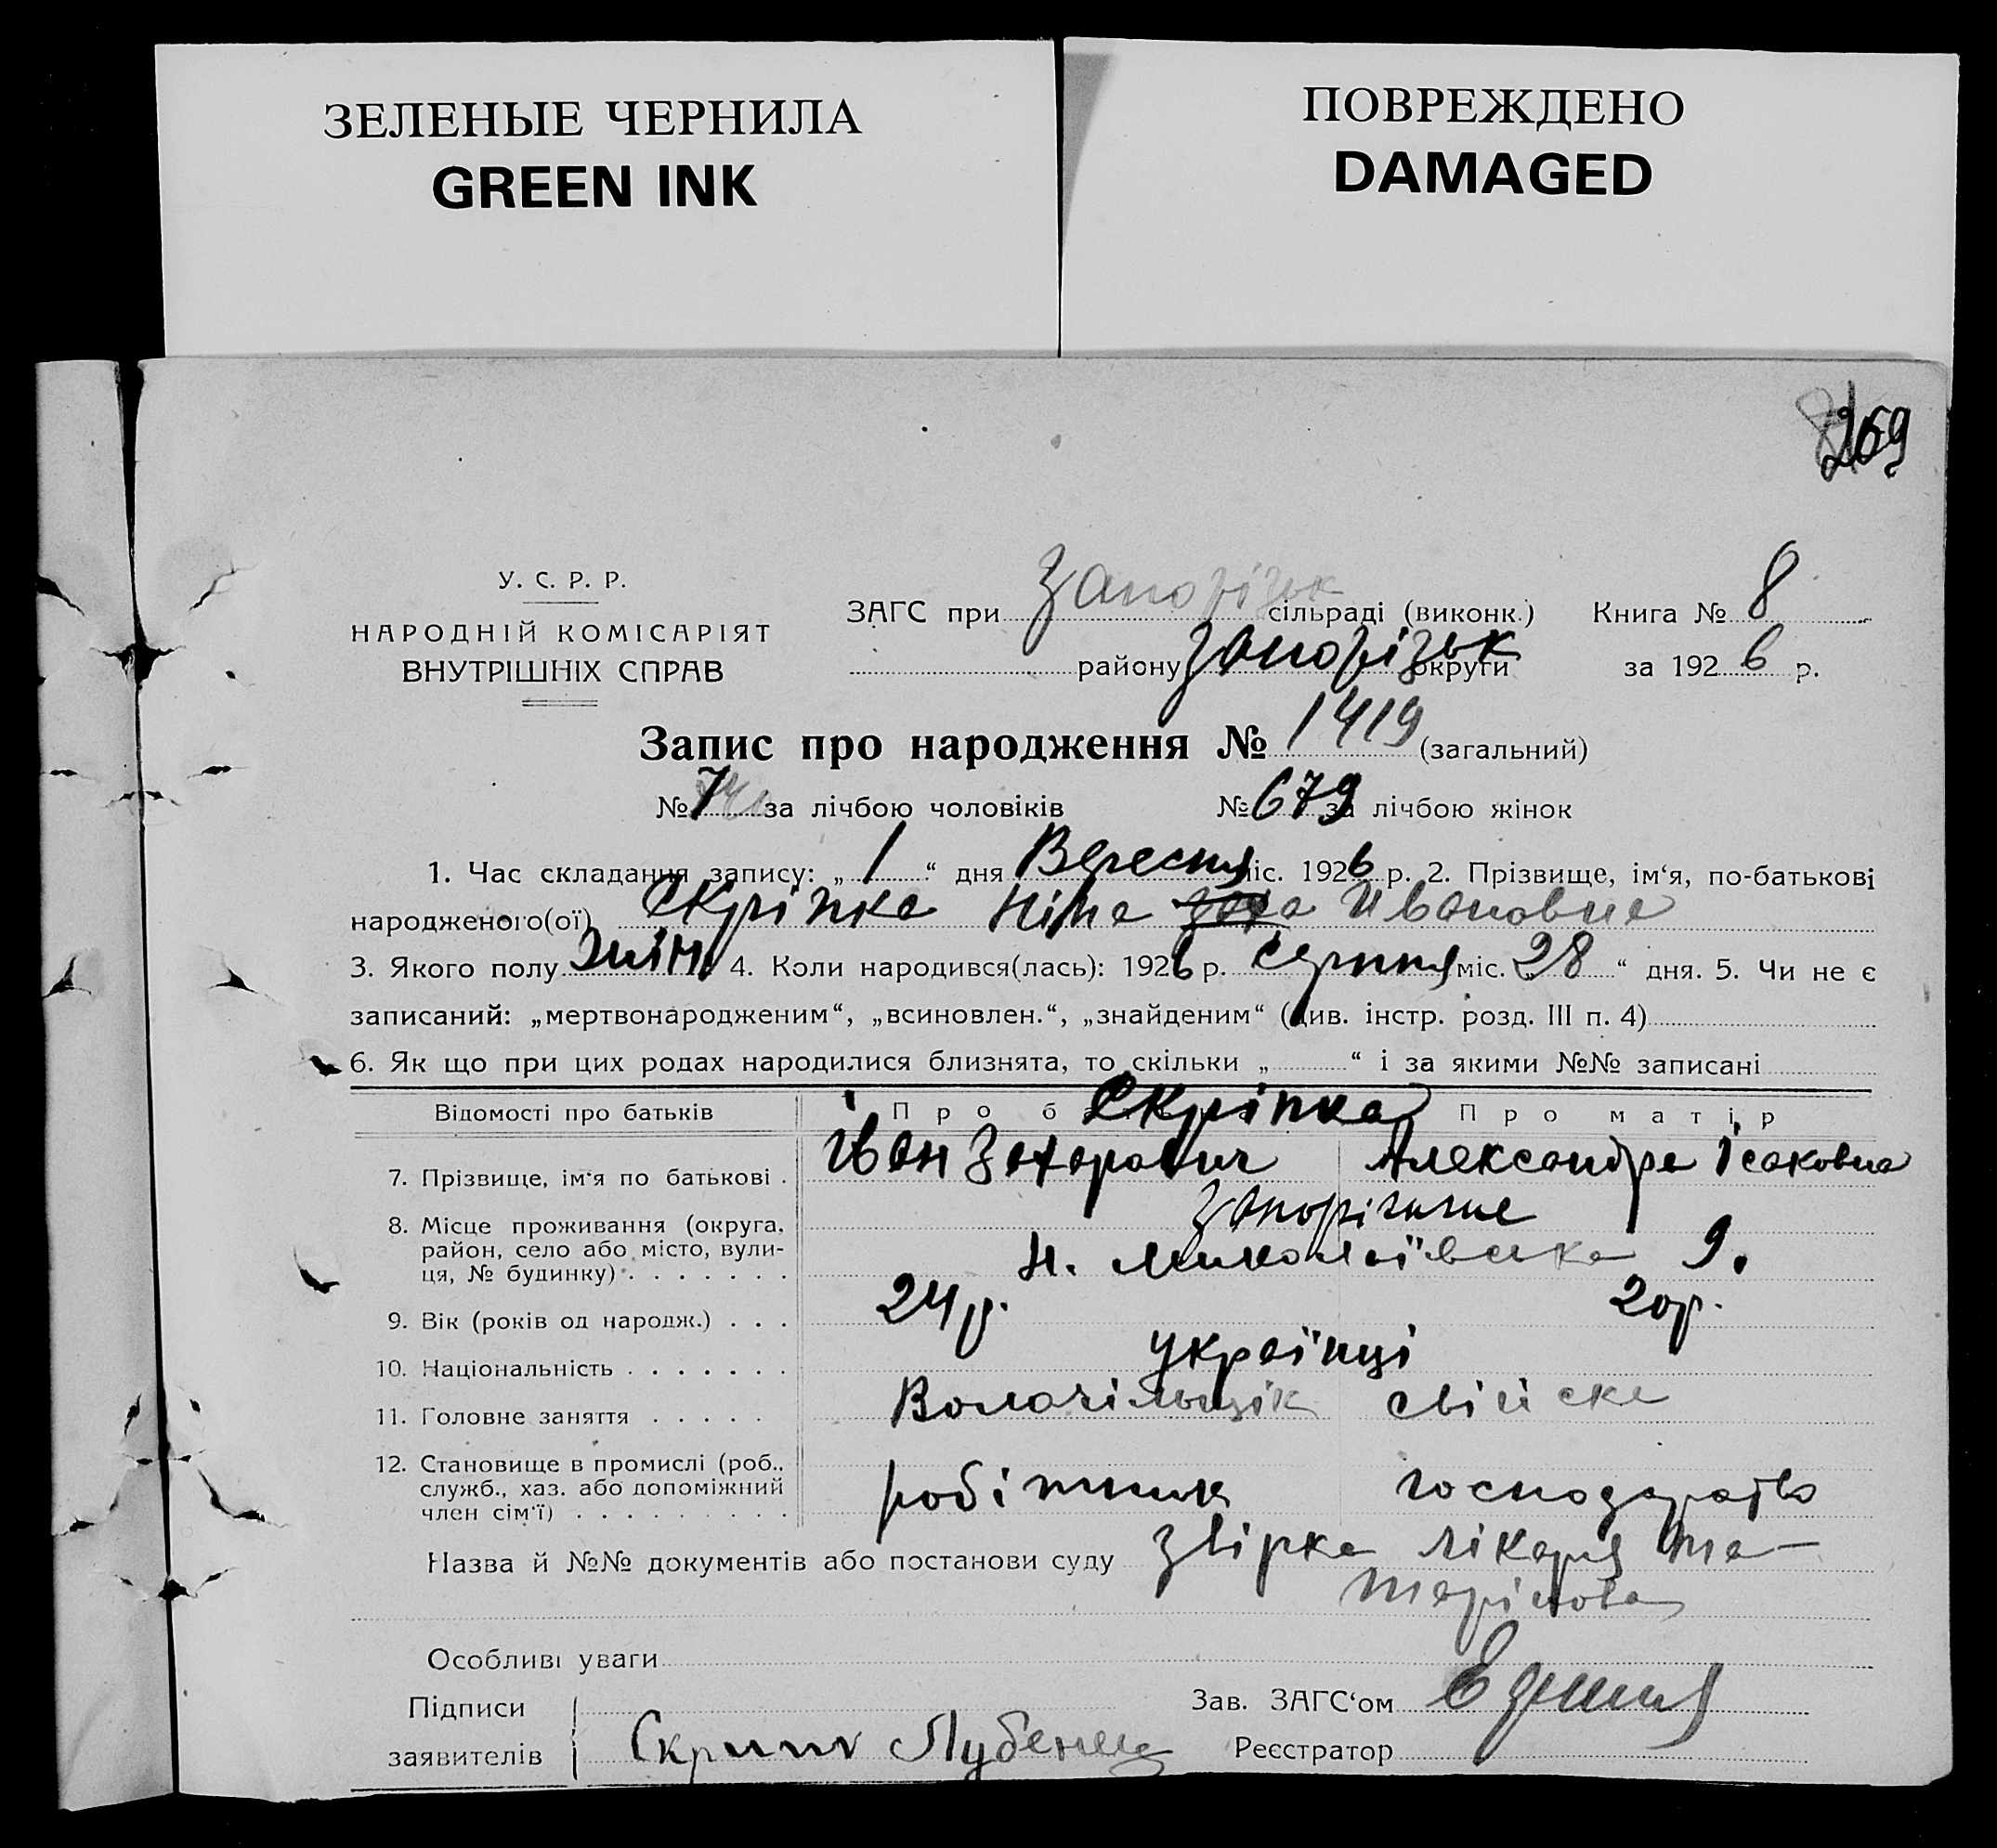 ЗЕЛЕНЫЕ ЧЕРНИЛА
GREEN INK
ПОВРЕЖДЕНО
DAMAGED
269
У. С. Р. Р.
НАРОДНІЙ КОМІСАРІЯТ
ВНУТРІШНІХ СПРАВ
ЗАГС при Запорізьк сільраді (виконк.) Книга № 8
району Запорізьк округи за 1926 р.
Запис про народження № 1419 (загальний)
№ за лічбою чоловіків № 679 за лічбою жінок
1. Час складання запису: „ 1 “ дня Вересня міс. 1926 р. 2. Прізвище, ім‘я, по-батькові
народженого(ої) Скріпка Ніна Ивановна
3. Якого полу жін. 4. Коли народився(лась): 1926 р. серпня міс. „28“ дня. 5. Чи не є
записаний: „мертвонародженим“, „всиновлен.“, „знайденим“ (див. інстр. розд. III п. 4)
6. Як що при цих родах народилися близнята, то скільки „ “ і за якими №№ записані
Відомості про батьків Про б Скріпка Про матір
7. Прізвище, ім‘я по батькові . Іван Захарович Александра Ісаковна
8. Місце проживання (округа, Запоріжжє
район, село або місто, вули-
ця, № будинку) . . . . . . . Н. Миколаївська 9.
9. Вік (років од народж.) . . . 24 р. 20 р.
10. Національність . . . . . . . українці
11. Головне заняття . . . . . Волочільщік свійске
12. Становище в промислі (роб.,
служб., хаз. або допоміжний робітник господарство
член сім‘ї) . . . . . . . . .
Назва й №№ документів або постанови суду звірка лікаря Та-
тарінова
Особливі уваги
Підписи Зав. ЗАГС‘ом
заявителів Лубенец Реєстратор